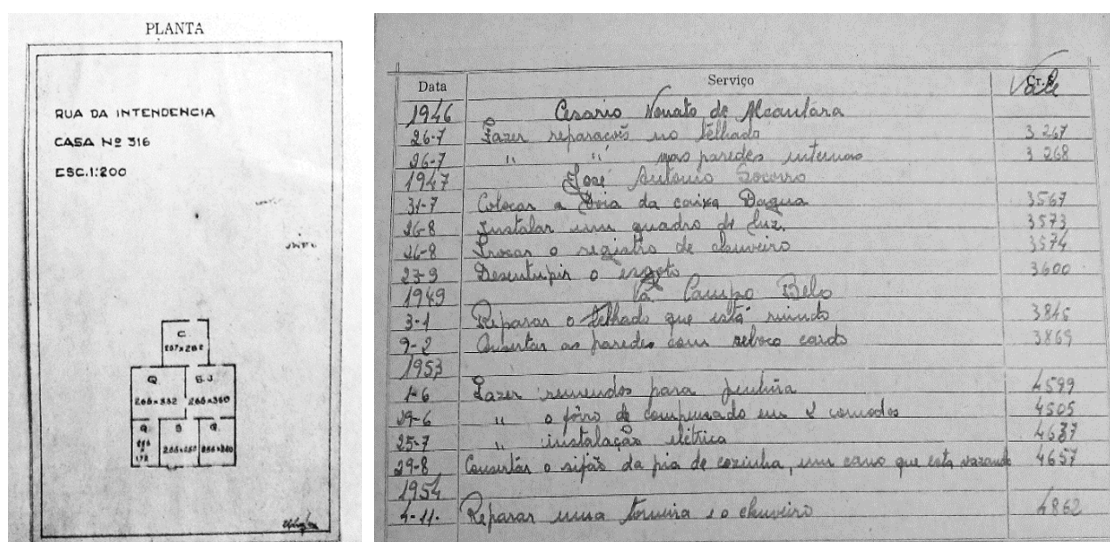 PLANTA
RUA DA INTENDENCIA
CASA Nº 316
ESC. 1:200
C.
267x262
Q S.J
266x332 266x360
Q. S Q.
Data Serviço Cr.$ Vale
1946 Cesario Nonato de Alcantara
26-7 Fazer reparações no telhado 3 267
26-7 " " nas paredes internas 3 268
1947 José Antonio Socorro
31-7 Colocar a boia da caixa Dagua 3567
26-8 Instalar um quadro de luz. 3573
26-8 Trocar o registro de chuveiro 3574
23-9 Desentupir o esgoto 3600
1949 Campo Belo
3-1 Reparar o telhado que está ruindo 3846
9-2 Consertar as paredes com reboco caido 3869
1953
1-6 Fazer remendos para pintura 4599
29-6 " o fôrro de compensado em 2 comodos 4505
25-7 " instalação elétrica 4637
29-8 Consertar o sifão da pia de cozinha, um cano que esta vazando 4657
1954
4-11. Reparar uma torneira e o chuveiro 4862